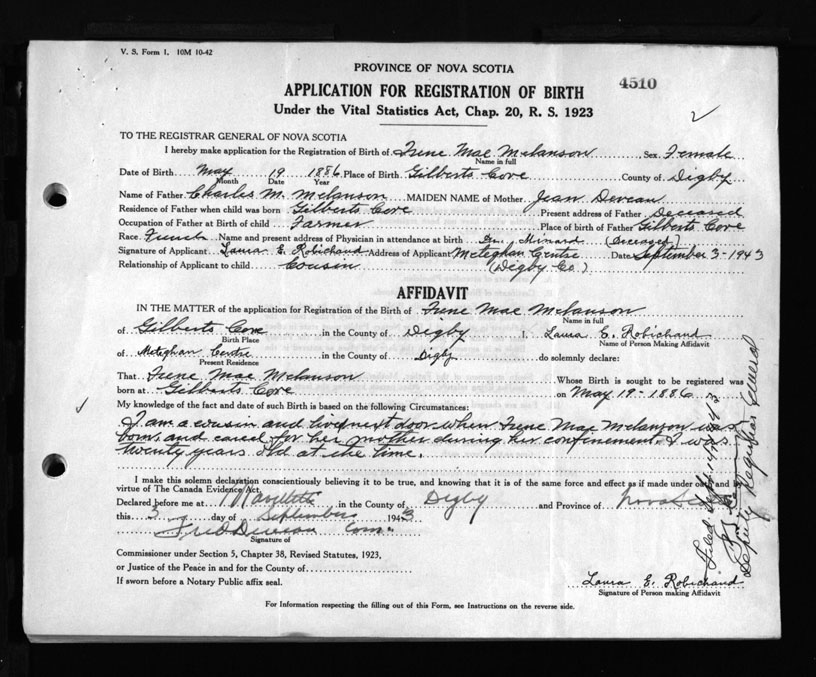 V. S. Form 1. 10M 10-42
PROVINCE OF NOVA SCOTIA
4510
APPLICATION FOR REGISTRATION OF BIRTH
Under the Vital Statistics Act, Chap. 20, R. S. 1923
TO THE REGISTRAR GENERAL OF NOVA SCOTIA
I hereby make application for the Registration of Birth of Irene Mae Melanson Sex Female
Name in full
Date of Birth May 19 1886 Place of Birth Gilberts Cove County of Digby
Month Date Year
Name of Father Charles M. Melanson MAIDEN NAME of Mother Jean Deveau
Residence of Father when child was born Gilberts Cove Present address of Father Deceased
Occupation of Father at Birth of child Farmer Place of birth of Father Gilberts Cove
Race French Name and present address of Physician in attendance at birth Dr. Minard (Deceased)
Signature of Applicant Laura E. Robichaud Address of Applicant Meteghan Centre Date September 3-1943
Relationship of Applicant to child Cousin (Digby Co.)
AFFIDAVIT
IN THE MATTER of the application for Registration of the Birth of Irene Mae Melanson
Name in full
of Gilberts Cove in the County of Digby I, Laura E. Robichaud
Birth Place Name of Person Making Affidavit
of Meteghan Centre in the County of Digby do solemnly declare:
Present Residence
That Irene Mae Melanson Whose Birth is sought to be registered was
born at Gilberts Cove on May 19-1886
My knowledge of the fact and date of such Birth is based on the following Circumstances:
I am a cousin and lived next door when Irene Mae Melanson was
born, and cared for her mother during her confinement. I was
twenty years old at the time.
I make this solemn declaration conscientiously believing it to be true, and knowing that it is of the same force and effect as if made under oath and by
virtue of The Canada Evidence Act.
Declared before me at Mavillette in the County of Digby and Province of Nova Scotia
this 3 day of September 1943
Com.
Signature of
Commissioner under Section 5, Chapter 38, Revised Statutes, 1923,
or Justice of the Peace in and for the County of
If sworn before a Notary Public affix seal.
Laura E. Robichaud
Signature of Person making Affidavit
For Information respecting the filling out of this Form, see Instructions on the reverse side.
Filed Sept.
Deputy Registrar General